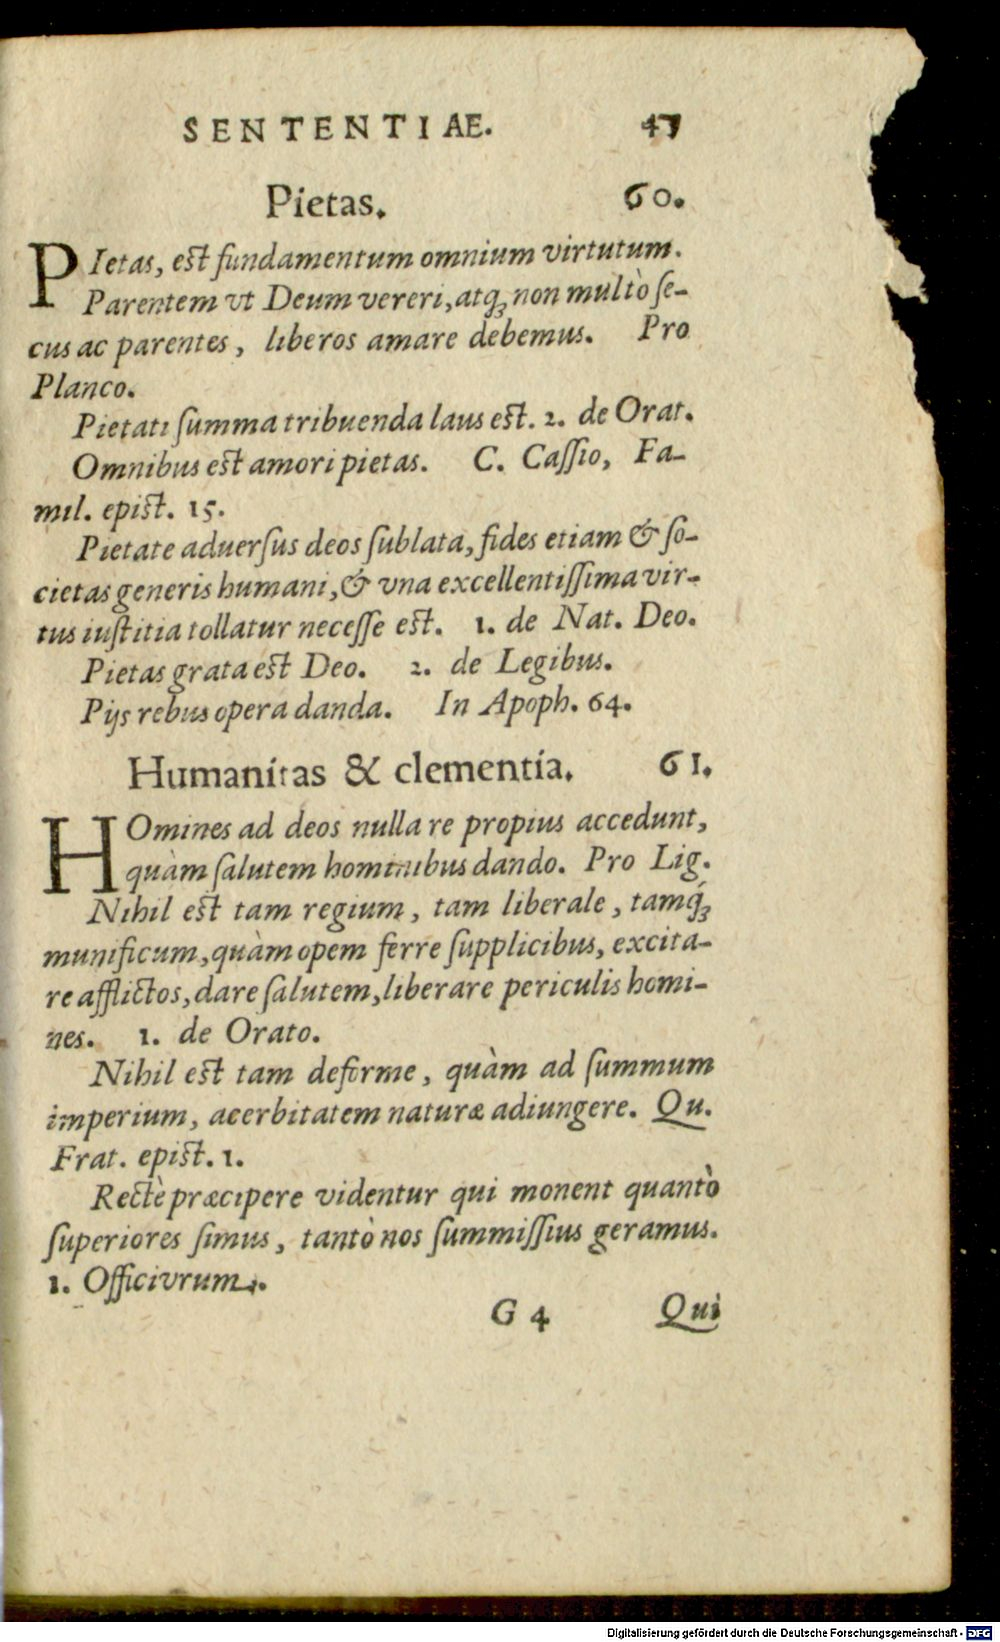 SENTENTIAE. 47
Pietas. 60.
PIetas, est fundamentum omnium virtutum.
Parentem vt Deum vereri, atq; non multò ſe-
cus ac parentes, liberos amare debemus. Pro
Planco.
Pietati ſumma tribuenda laus est. 2. de Orat.
Omnibus est amori pietas. C. Caſſio, Fa-
mil. epist. 15.
Pietate aduerſus deos ſublata, fides etiam & ſo-
cietas generis humani, & vna excellentiſſima vir-
tus iuſtitia tollatur neceſſe est. 1. de Nat. Deo.
Pietas grata est Deo. 2. de Legibus.
Pijs rebus opera danda. In Apoph. 64.
Humanitas & clementia. 61.
HOmines ad deos nulla re propius accedunt,
quàm ſalutem hominibus dando. Pro Lig.
Nihil est tam regium, tam liberale, tamq́;
munificum, quàm opem ferre ſupplicibus, excita-
re afflictos, dare ſalutem, liberare periculis homi-
nes. 1. de Orato.
Nihil est tam deforme, quàm ad ſummum
imperium, acerbitatem naturæ adiungere. Qu.
Frat. epist. 1.
Rectè præcipere videntur qui monent quantò
ſuperiores ſimus, tantò nos ſummiſſius geramus.
1. Officivrum.
G 4 Qui
Digitalisierung gefördert durch die Deutsche Forschungsgemeinschaft - DFG